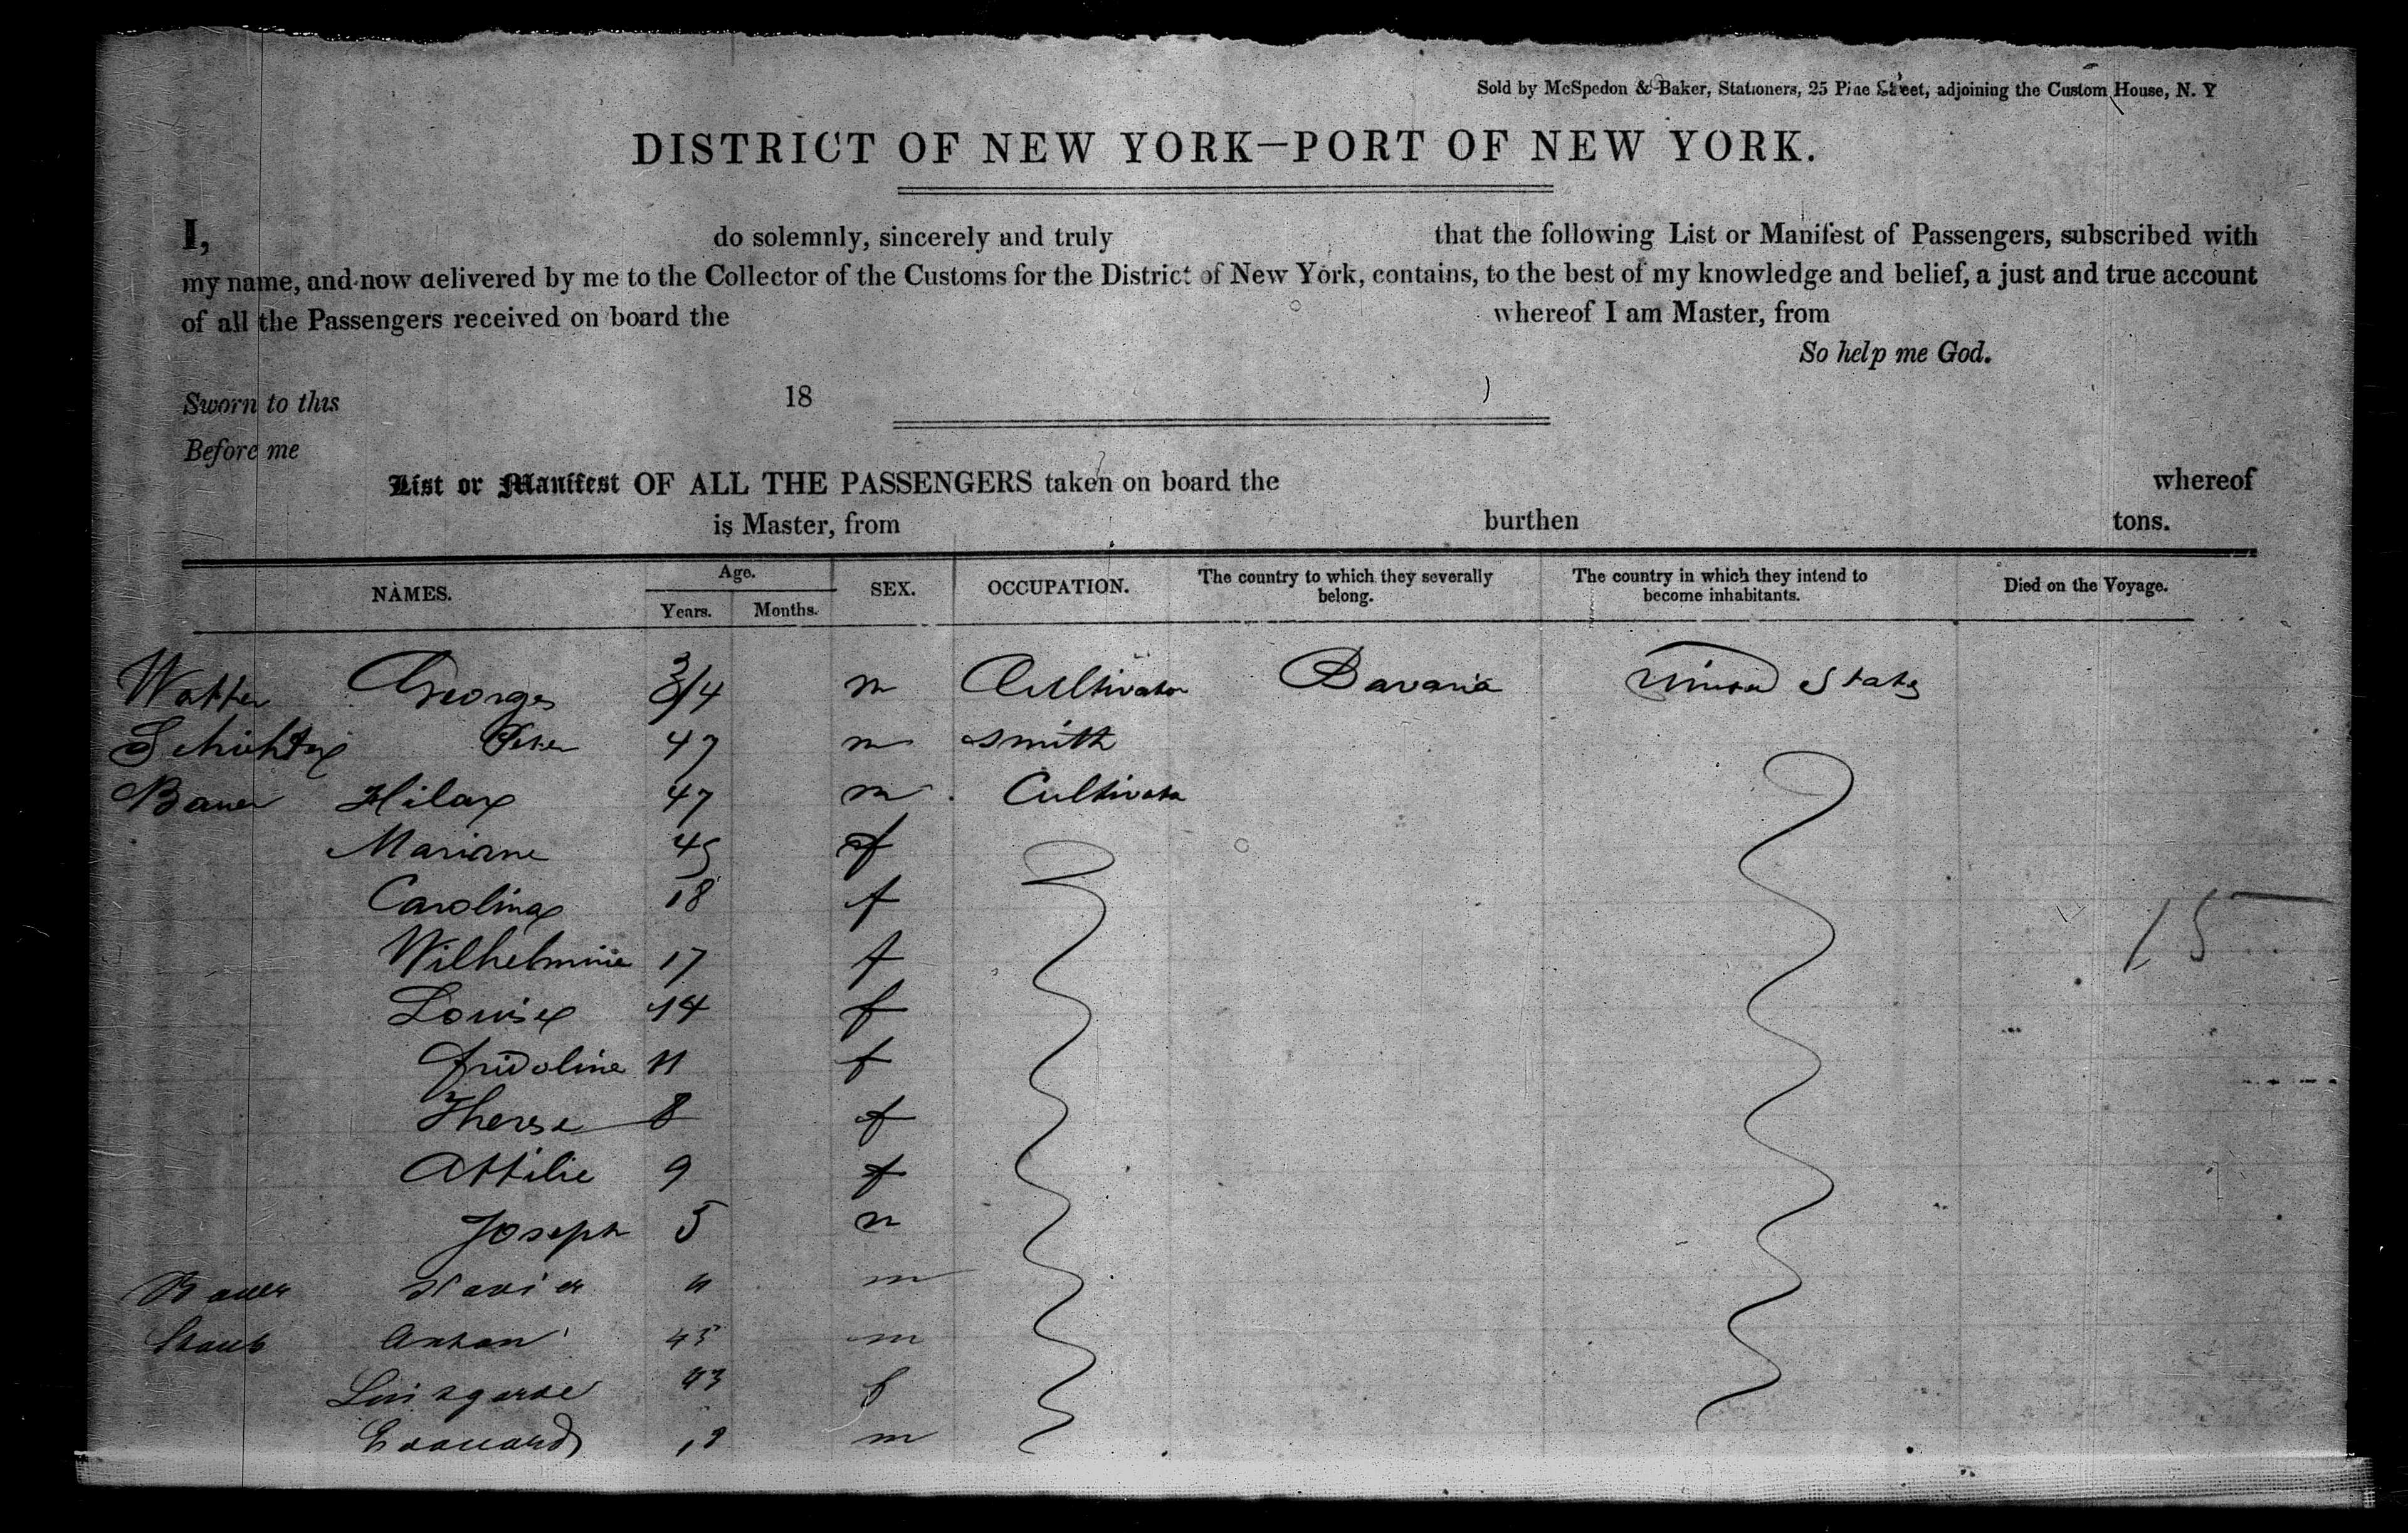 Sold by McSpedon & Baker, Stationers, 25 Pine Street, adjoining the Custom House, N. Y
DISTRICT OF NEW YORK—PORT OF NEW YORK.
I, do solemnly, sincerely and truly that the following List or Manifest of Passengers, subscribed with
my name, and now delivered by me to the Collector of the Customs for the District of New York, contains, to the best of my knowledge and belief, a just and true account
of all the Passengers received on board the whereof I am Master, from
So help me God.
Sworn to this 18
Before me
List or Manifest OF ALL THE PASSENGERS taken on board the whereof
is Master, from burthen tons.
NAMES. Age. Years. Months. SEX. OCCUPATION. The country to which they severally belong. The country in which they intend to become inhabitants. Died on the Voyage.
Georges m Cultivator Bavaria Union States
Peter 47 m smith
Bauer Hilar 47 m Cultivator
Mariane 45 f
Carolina 18 f
Wilhelmine 17 f
Louise 14 f
Fridoline 11 f
Therese 8 f
Attilie 9 f
15
Joseph 5 m
Bauer Xavier m
Staub Anton 45 m
43 f
Edouard 18 m